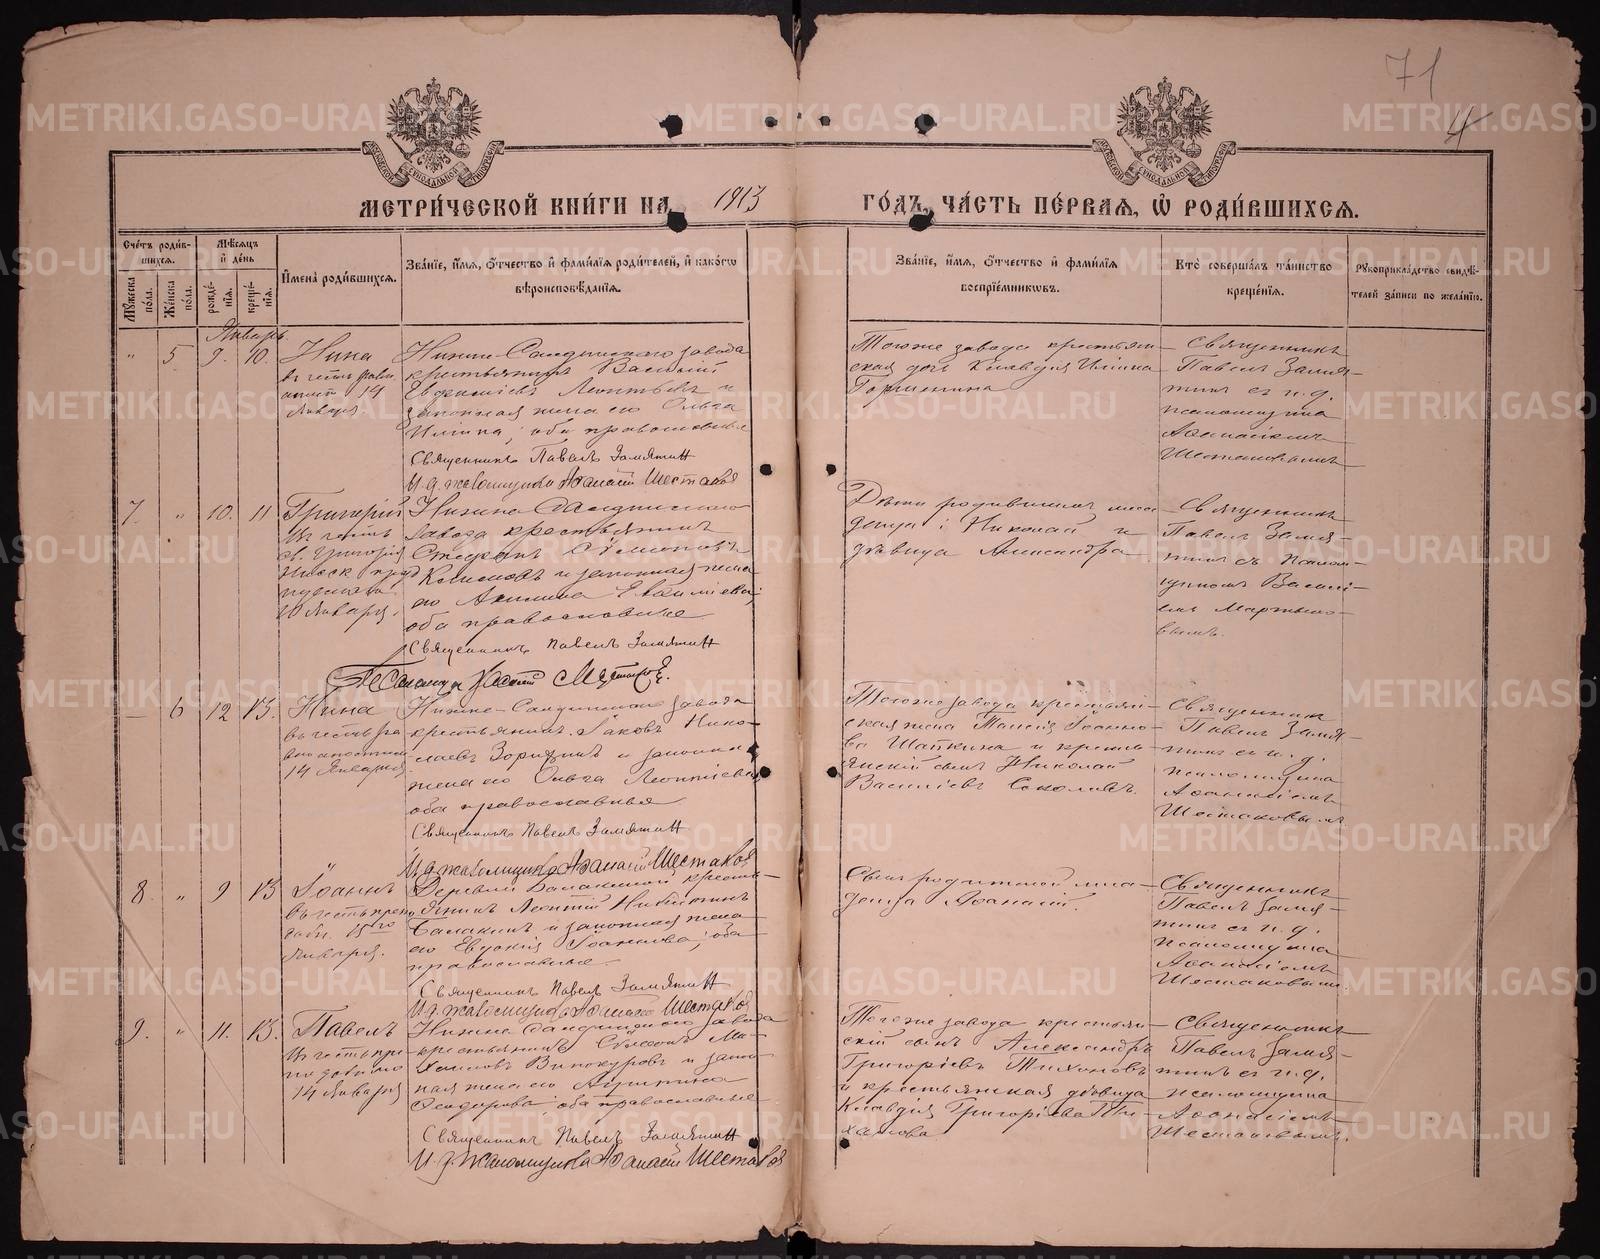 71
4
МЕТРИ́ЧЕСКОЙ КНИ́ГИ НА 1913 ГО́ДЪ, ЧА́СТЬ ПЕ́РВАЯ, Ѡ РОДИ́ВШИХСЯ.
Сче́тъ роди́вшихся.
Му́жеска по́ла.
Же́нска по́ла.
Мѣ́сяцъ и де́нь
рожде́нія.
креще́нія.
Имена̀ роди́вшихся.
Зва́ніе, и́мя, о́тчество и фами́лія роди́телей, и како́гѡ
вѣроисповѣ́данія.
Зва́ніе, и́мя, о́тчество и фами́лія
воспріе́мниковъ.
Кто̀ соверша́лъ та́инство
креще́нія.
Рукоприкла́дство свидѣ́-
телей за́писи по жела́нію.
Январь
" 5 9. 10.
Нина
въ честь равн.
апост 14
Января.
Нижне-Салдинскаго завода
крестьянинъ Василий
Евфимиевъ Леонтьевъ и
законная жена его Ольга
Илiина; оба православные
Священникъ Павелъ Замятин
И. д. псаломщика Афанасiй Шестаковъ
Тогоже завода крестьян-
ская дочь Клавдiя Илiина
Священникъ
Павелъ Замя-
тинъ съ и. д.
псаломщика
Афанасiемъ
Шестаковымъ
7. " 10. 11
Григорий
въ честь
св. Григорiя
Нисск
10 Января.
Нижне-Салдинскаго
завода крестьянинъ
Стефанъ Симоновъ
и законная жена
его Акилина
оба православные
Священникъ Павелъ Замятин
Псаломщ
Дѣти родившаго мла-
денца: Николай и
дѣвица Александра
Священникъ
Павелъ Замя-
тинъ съ псалом-
щикомъ Васи-
лiемъ Мартыно-
вымъ.
— 6 12 13.
Нина
въ честь ра
вноапостол
14 Января
Нижне-Салдинскаго завода
крестьянинъ Iаковъ Нико-
лаевъ Зоринъ и законная
жена его Ольга Леонтiева
оба православные
Священникъ Павелъ Замятин
И. д. псаломщика Афанасiй Шестаковъ
Тогоже завода крестьян-
ская жена Таисiя Iоанно-
ва Шапкина и кресть-
янскiй сынъ Николай
Василiевъ Соколовъ.
Священникъ
Павелъ Замя-
тинъ съ и. д.
псаломщика
Афанасiемъ
Шестаковымъ
8. " 9 13
Iоаннъ
въ честь преп
добн. 15го
Января.
Деревни Балакиной кресть-
янинъ Леонтiй Никитинъ
Балакинъ и законная жена
его Евдокiя Iоаннова; оба
православные.
Священникъ Павелъ Замятин
И. д. псаломщика Афанасiй Шестаковъ
Сынъ родителей мла-
денца Афанасiй.
Священникъ
Павелъ Замя-
тинъ съ и. д.
псаломщика
Афанасiемъ
Шестаковымъ.
9. " 11. 13.
Павелъ
въ честь пре
подобнаго
14 Января
Нижне-Салдинскаго завода
крестьянинъ Стефанъ Ми-
хаиловъ Винокуровъ и закон-
ная жена его Агриппина
Феодорова оба православные
Священникъ Павелъ Замятин
И. д. псаломщика Афанасiй Шестаковъ
Тогоже завода крестьян-
скiй сынъ Александръ
Григорiевъ Тихоновъ
и крестьянская дѣвица
Клавдiя Григорiева Ти-
хонова
Священникъ
Павелъ Замя-
тинъ съ и. д.
псаломщика
Афанасiемъ
Шестаковымъ.
METRIKI.GASO-URAL.RU